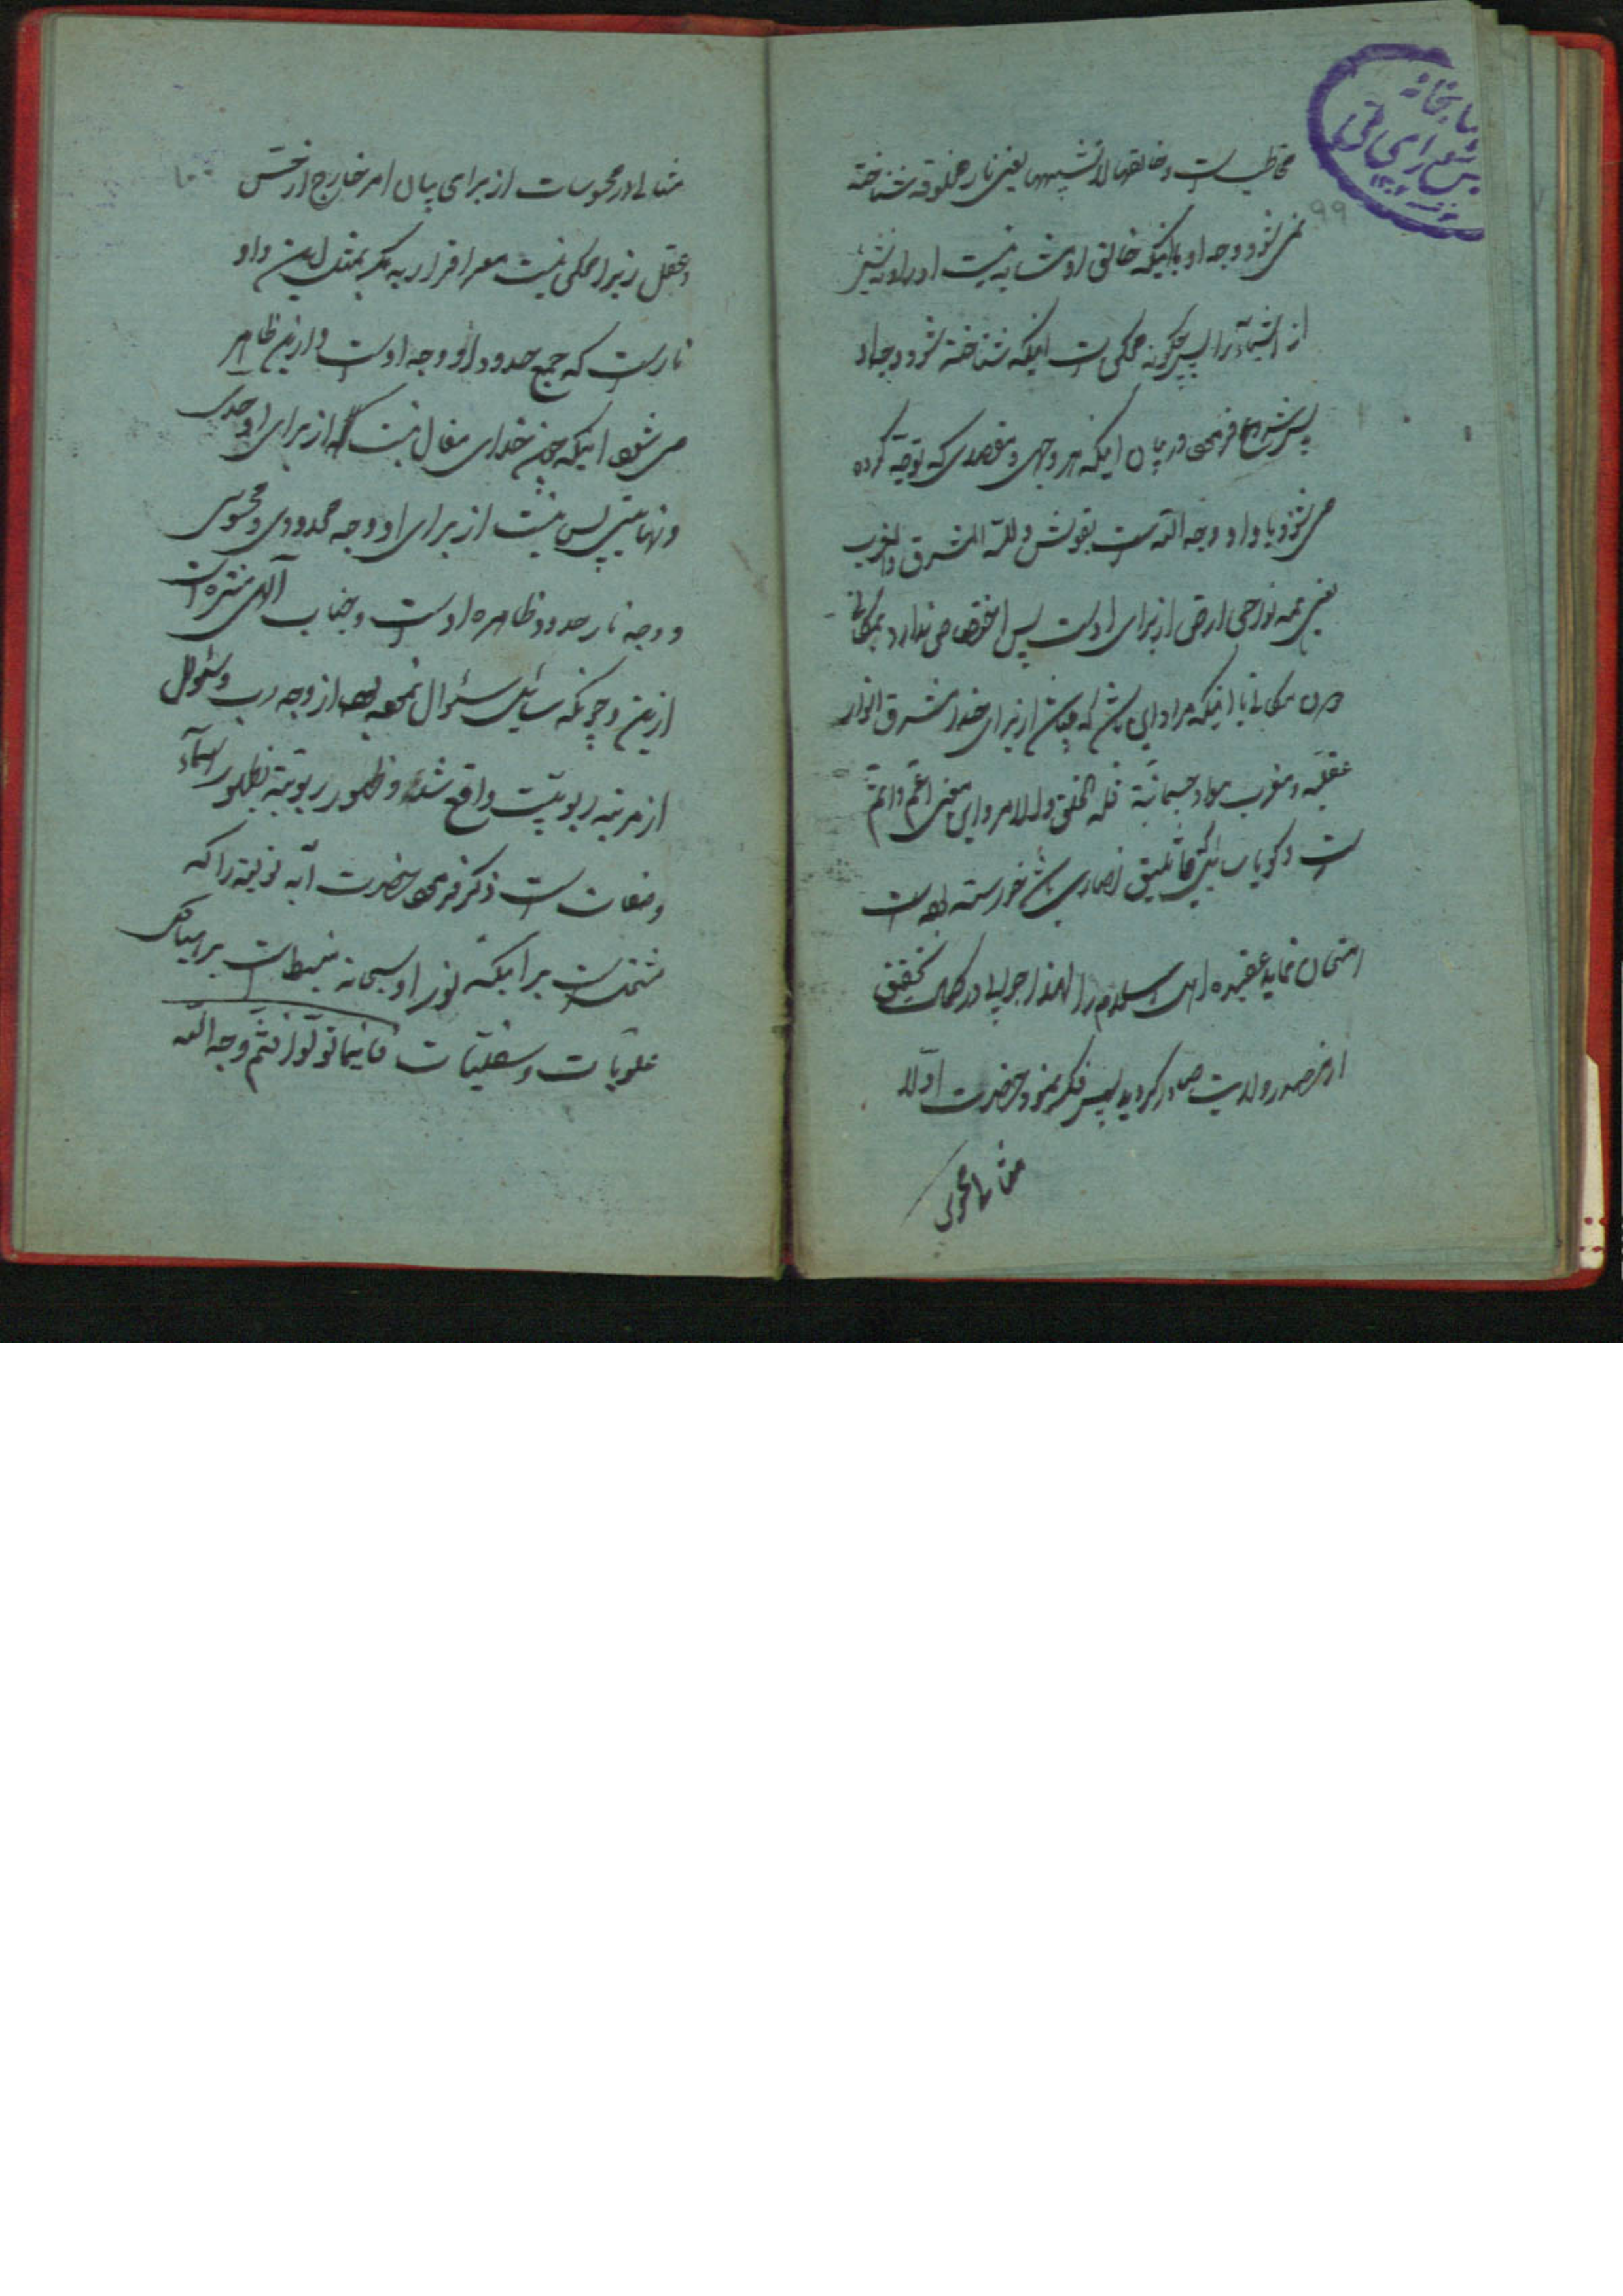 است و خالقها لا تشبهها یعنی نار مخلوقه شناخته
نمی شود وجه او با اینکه خالق او شابه نیست او را و نه شئ
از اشیاء را پس چگونه ممکن است اینکه شناخته شود وجه او
پس فرموده در بیان اینکه هر وجهی و مقصدی که توجه کرده
می شود با و او وجه الله است بقولش و لله المشرق و المغرب
یعنی همه نواحی ارض از برای اوست پس اختصاصی ندارد بمکانی
دون مکانی با اینکه مراد این باشد که از برای خدا مشرق انوار
عقلیه و مغرب مواد جسمانیة فله الخلق و له الامر و این معنی اعم و اتم
است و گویا نصاری خواسته بوده است
امتحان نماید عقیده اهل اسلام را لهذا جواب در کمال تحقیق
از مصدر ولایت صادر گردید پس ذکر نمود حضرت اولا
مثالی محسوس
۹۹
کتابخانه
مثالی در محسوسات از برای بیان امر خارج از حس
و عقل زیرا ممکن نیست مر اقرار به مگر بمثل این و او
نار است که جمیع حدود او وجه اوست و ازین ظاهر
می شود اینکه چون خدای متعال نیست که از برای او حدی
و نهایتی پس نیست از برای او وجه محدودی و محسوسی
و وجه نار حدود ظاهره اوست و جناب الهی منزه است
ازین و چونکه سائل سئوال نموده بود از وجه رب و سئوال
از مرتبه ربوبیت واقع شده و ظهور ربوبیة بظهور اسماء
و صفات است ذکر فرموده حضرت آیه نوریه را که
مشتمل است بر اینکه نور او سبحانه منبسط است بر هیاکل
علویات و سفلیات فاینما تولوا فثم وجه الله
۱۰۰